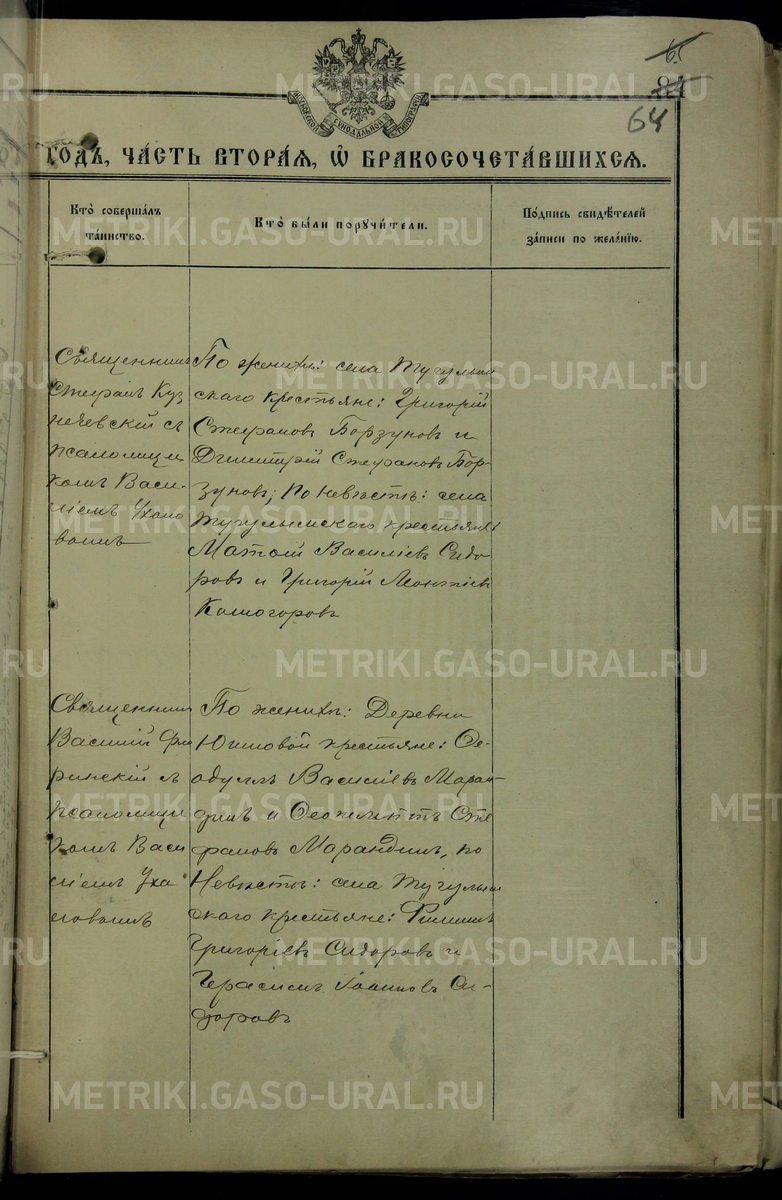 65
84
64
МОСКОВСКОЙ СѴНОДАЛЬНОЙ ТИПОГРАФІИ
ГОДЪ, ЧАСТЬ ВТОРАЯ, Ѽ БРАКОСОЧЕТАВШИХСЯ.
Кто совершалъ
таинство.
Кто были поручители.
Подпись свидѣтелей
записи по желанію.
Священникъ
Стефанъ Куз
нечевскій съ
псаломщи
комъ Васи-
ліемъ Ухано
вымъ
По женихѣ: села Тугулым
скаго крестьяне: Григорій
Стефановъ Борзуновъ и
Димитрій Стефановъ Бор-
зуновъ; по невѣстѣ: села
Тугулымскаго крестьяне
Матѳій Василіевъ Сидо-
ровъ и Григорій Леонтіевъ
Кошогоровъ
Священникъ
Василій
ринскій съ
псаломщи
комъ Васи
ліемъ Уха
новымъ
По женихѣ: Деревни
Юшковой крестьяне: Ѳе-
одулъ Василіевъ Маран-
динъ и Ѳеоктистъ Сте
фановъ Марандинъ, по
Невѣстѣ: села Тугулым
скаго крестьяне: Филиппъ
Григоріевъ Сидоровъ и
Герасимъ Іоанновъ Си-
доровъ
METRIKI.GASO-URAL.RU